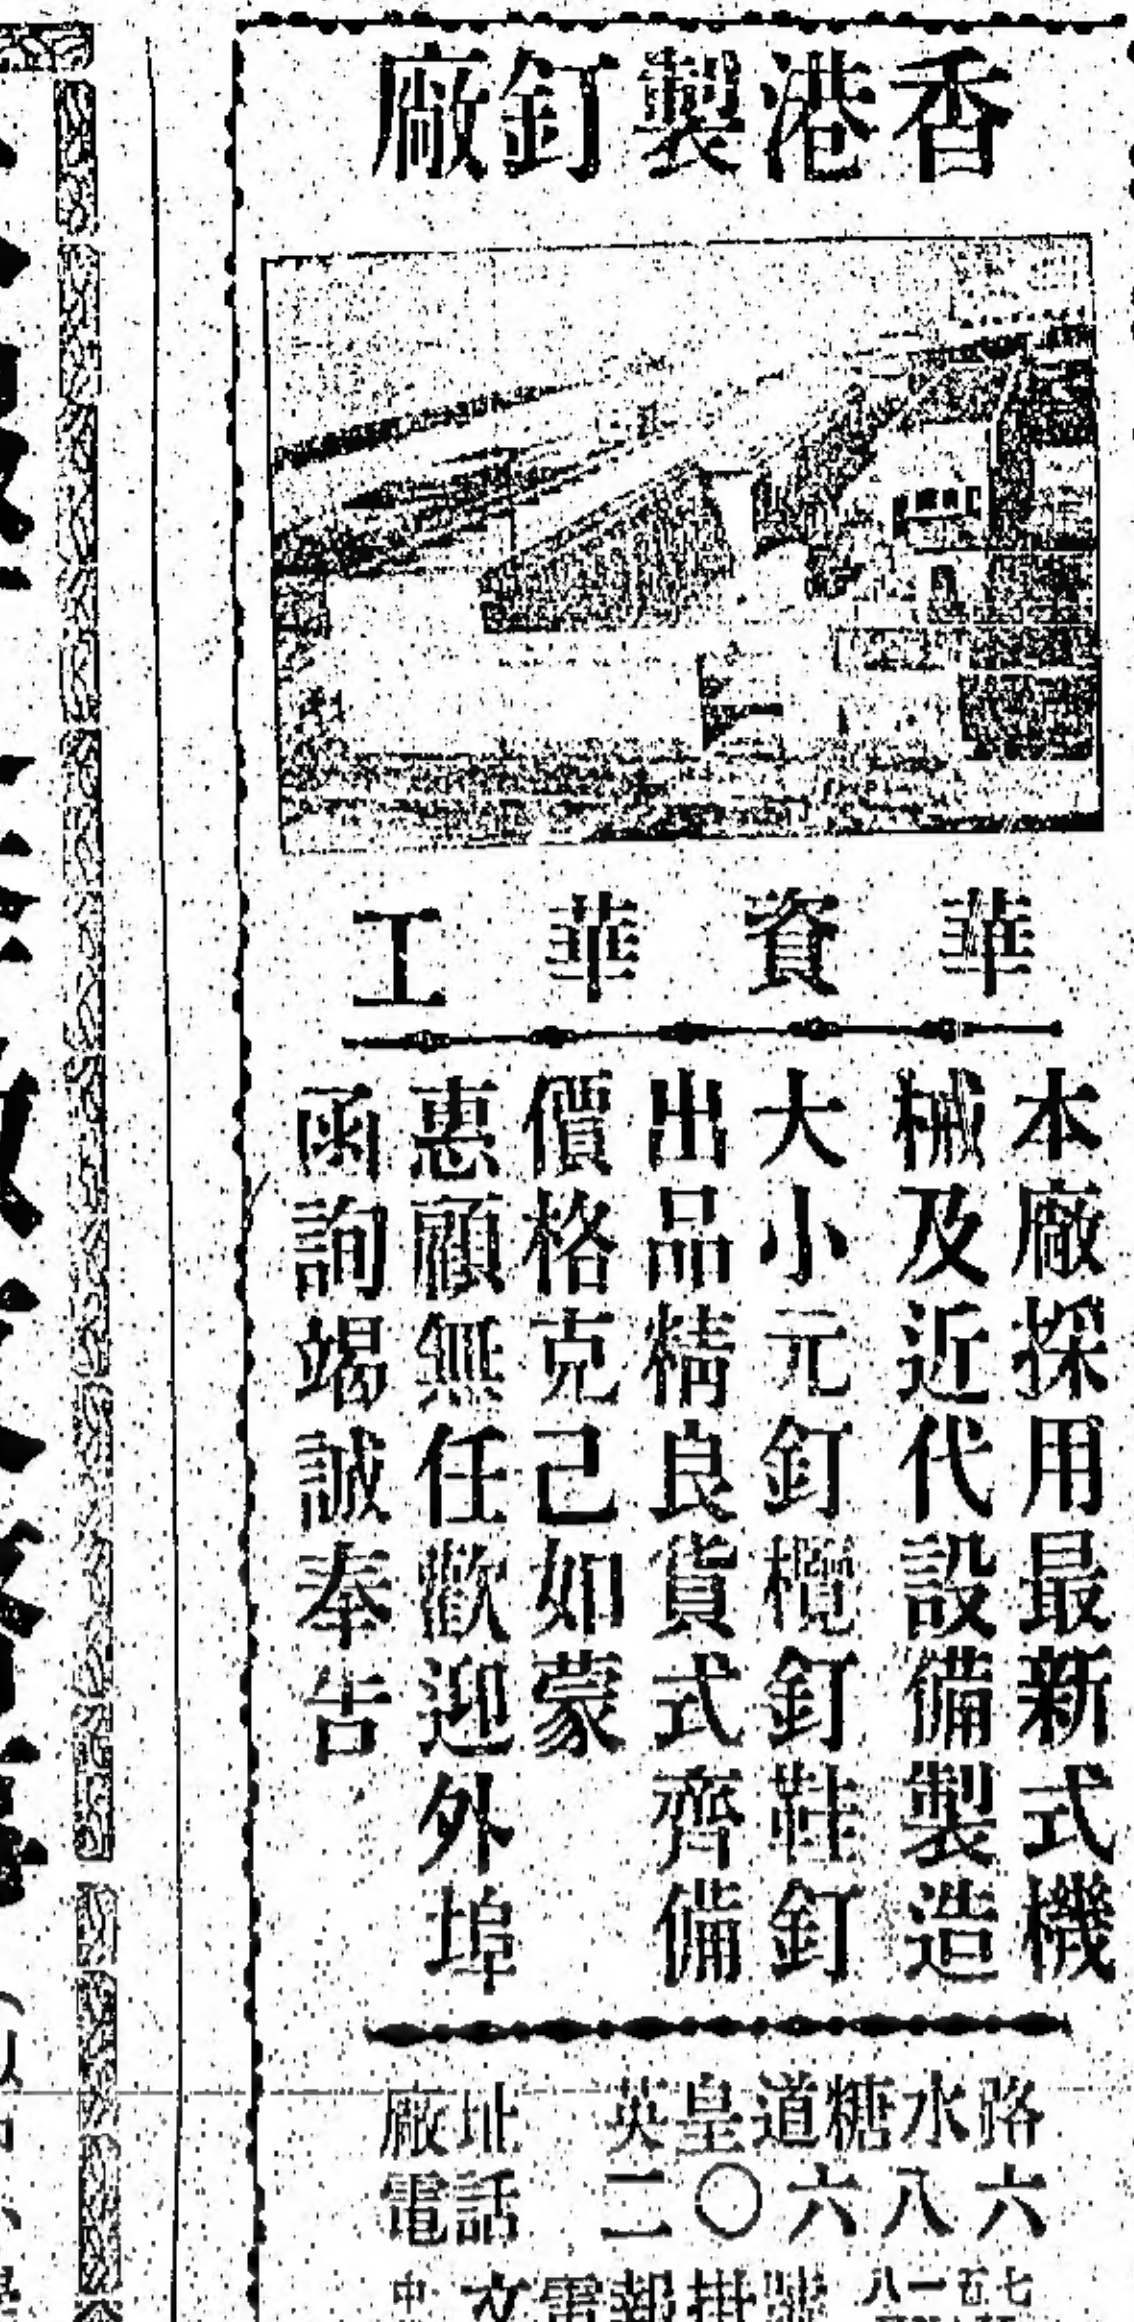 香港製釘廠
華資華工
本廠採用最新式機
械及近代設備製造
大小元釘欖釘鞋釘
出品精良貨式齊備
價格克己如蒙
惠顧無任歡迎外埠
函詢竭誠奉告
廠址 英皇道糖水路
電話 二〇六八六
中文電報掛號 八一五七